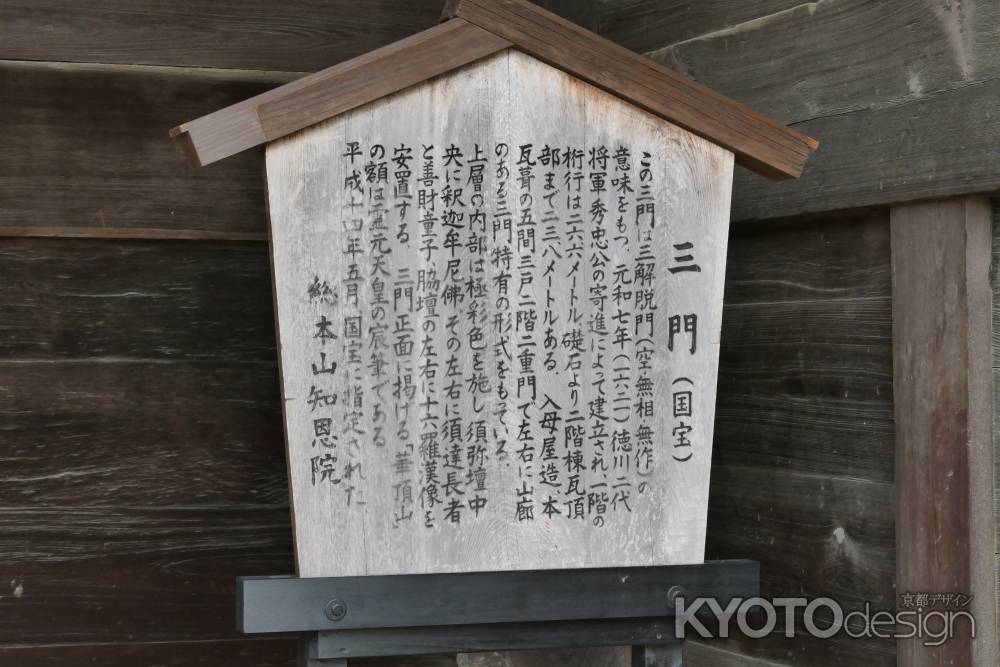 三門（国宝）
この三門は三解脱門（空・無相・無作）の
意味をもつ。元和七年（一六二一）徳川二代
将軍秀忠公の寄進によって建立され、一階の
桁行は二六・六メートル、礎石より二階棟瓦頂
部まで二三・八メートルある。入母屋造、本
瓦葺の五間三戸二階二重門で左右に山廊
のある三門特有の形式をもている。
上層の内部は極彩色を施し須弥壇中
央に釈迦牟尼佛その左右に須達長者
と善財童子、脇壇の左右に十六羅漢像を
安置する。三門正面に掲げる「華頂山」
の額は霊元天皇の宸筆である
平成十四年五月、国宝に指定された
総本山知恩院
京都デザイン
KYOTOdesign